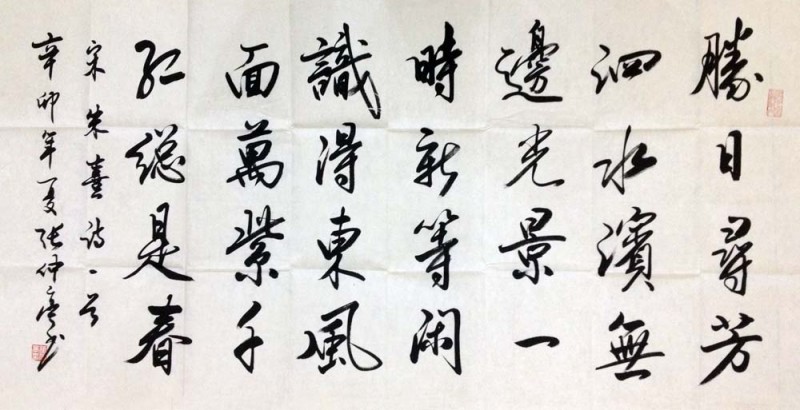 勝日尋芳
泗水濱無
邊光景一
時新等閑
識得東風
面萬紫千
紅總是春
宋朱熹詩一首
辛卯年夏張仲亭书